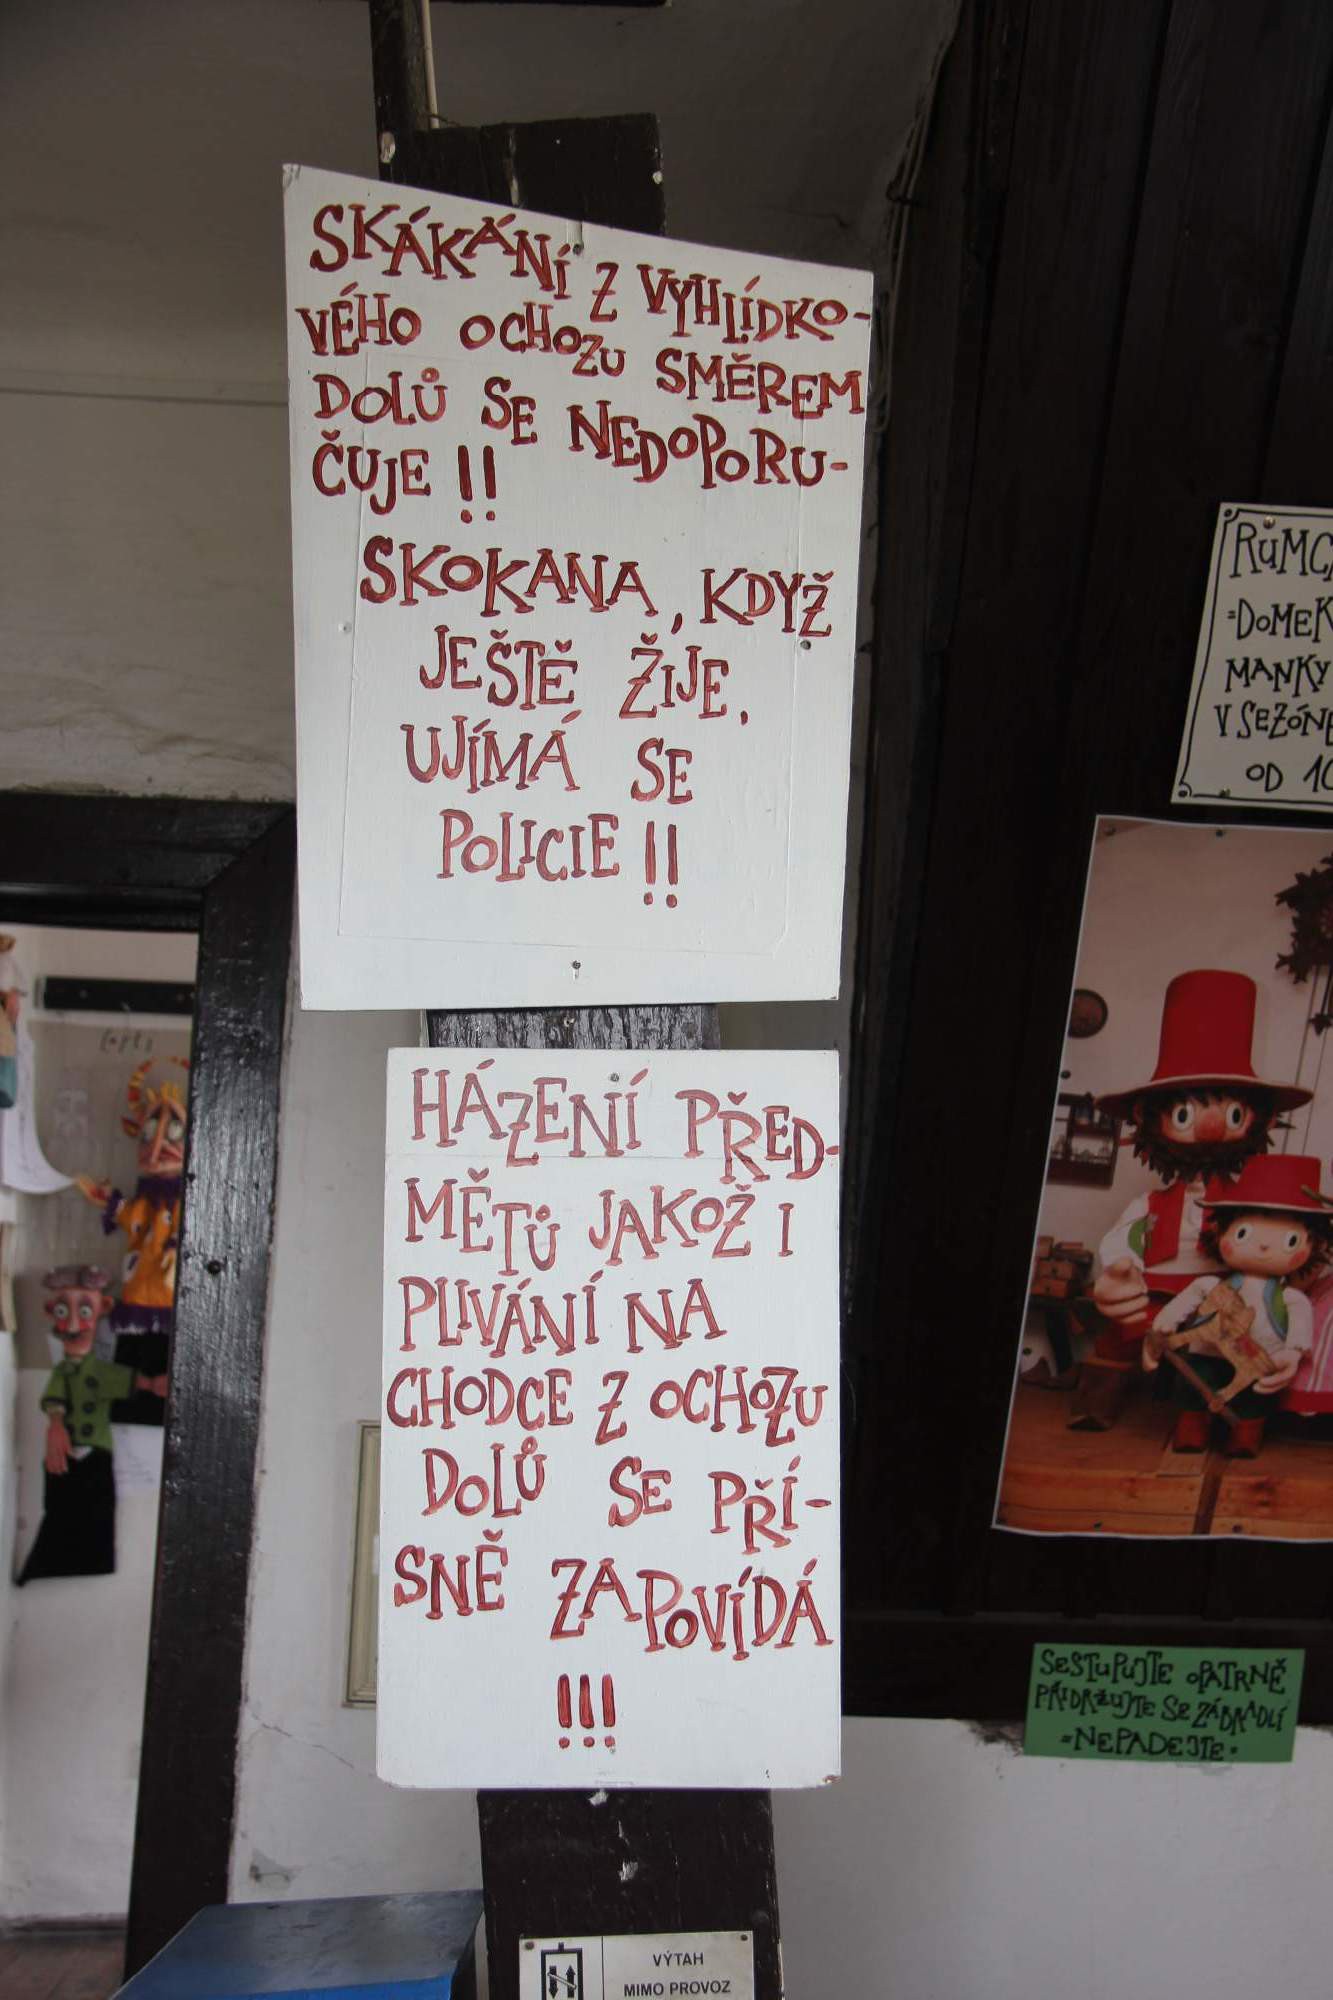 SKÁKÁNÍ Z VYHLÍDKO-
VÉHO OCHOZU SMĚREM
DOLŮ SE NEDOPORU-
ČUJE!!
SKOKANA, KDYŽ
JEŠTĚ ŽIJE,
UJÍMÁ SE
POLICIE!!
HÁZENÍ PŘED-
MĚTŮ JAKOŽ I
PLIVÁNÍ NA
CHODCE Z OCHOZU
DOLŮ SE PŘÍ-
SNĚ ZAPOVÍDÁ
!!!
VÝTAH
MIMO PROVOZ
=DOMEK
MANKY
V SEZÓNĚ
OD 10
SESTUPUJTE OPATRNĚ
PŘIDRŽUJTE SE ZÁBRADLÍ
=NEPADEJTE=